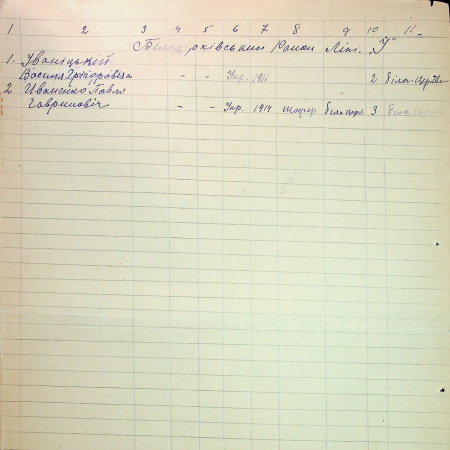 1 2 3 4 5 6 7 8 9 10 11
Білоцерківський Район Літ. "І"
1. Іваніцький
Василь Григорович - - Укр. 1911 2 біла-Церква
2 Иваненко Павло
Гаврилович - - Укр. 1914 шофер біла церк. 3 біла церква